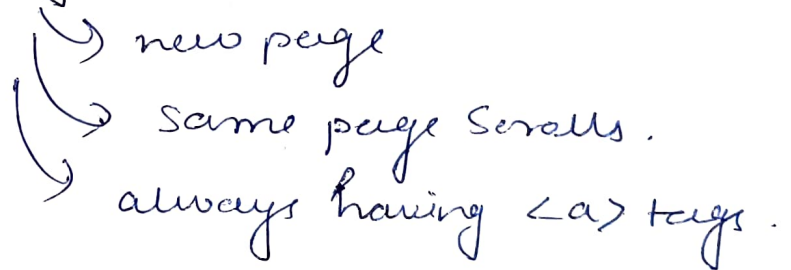 new page
same page Scrolls.
always having <a> tags.